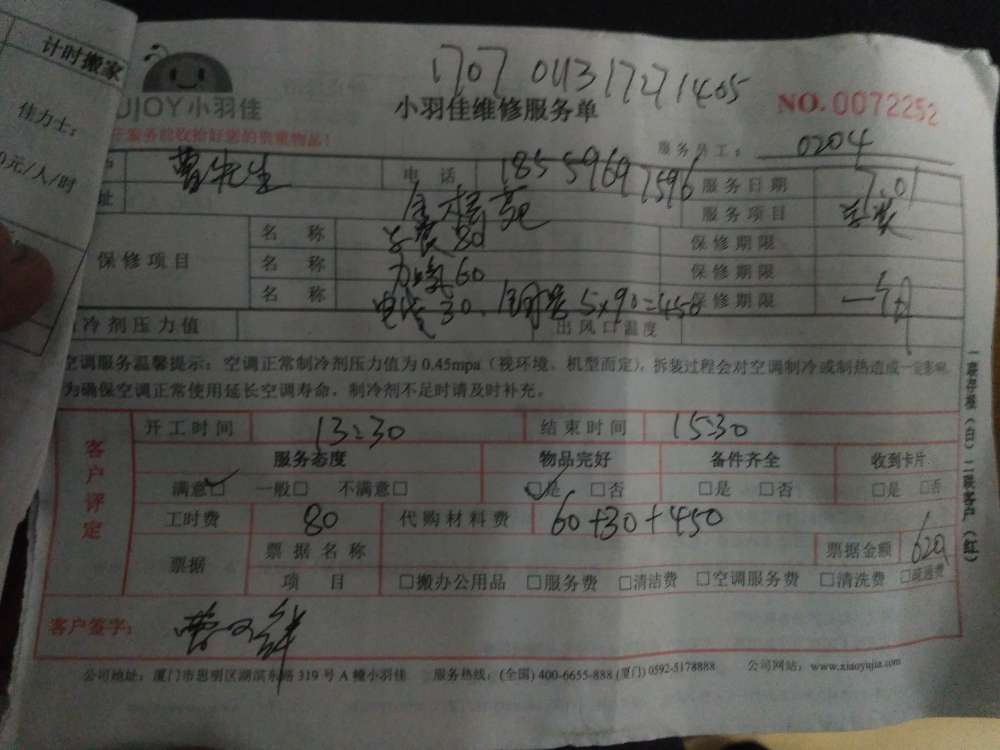 计时搬家
佳力士:
0元/人/时
1707011317271405
UJOY小羽佳
小羽佳维修服务单
NO.0072252
服务员工: 0204
曹先生 电话 18559697596 服务日期 7.01
址 服务项目
保修项目 名称 安装80 保修期限
名称 加氟60 保修期限
名称 30、5×90=450 保修期限 一个月
冷剂压力值 出风口温度
空调服务温馨提示:空调正常制冷剂压力值为0.45mpa(视环境、机型而定),拆装过程会对空调制冷或制热造成一定影响,
为确保空调正常使用延长空调寿命。制冷剂不足时请及时补充。
客户评定
开工时间 13:30 结束时间 15:30
服务态度 物品完好 备件齐全 收到卡片
满意☑ 一般□ 不满意□ ☑是 □否 □是 □否 □是 □否
工时费 80 代购材料费 60+30+450
票据 票据名称 票据金额 620
项目 □搬办公用品 □服务费 □清洁费 □空调服务费 □清洗费 □疏通费
客户签字:
公司地址:厦门市思明区湖滨东路319号A幢小羽佳 服务热线:(全国)400-6655-888(厦门)0592-5178888 公司网站:www.xiaoyujia.com
一联存根(白)二联客户(红)